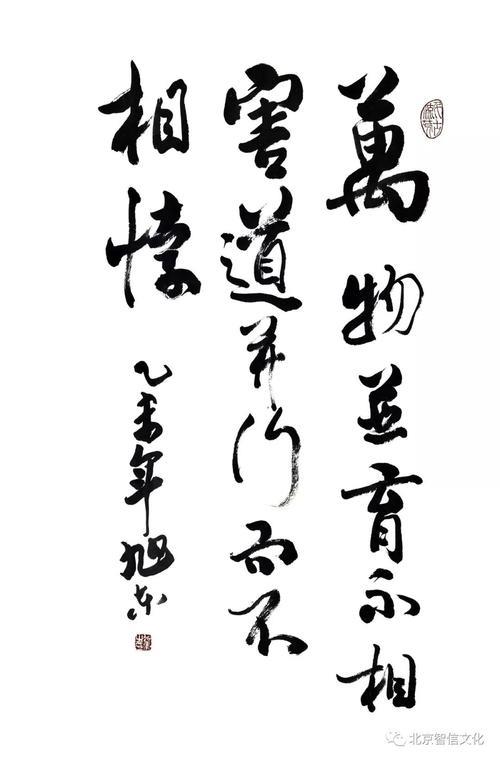 萬物並育不相
害道并行而不
相悖
乙未年旭东
北京智信文化